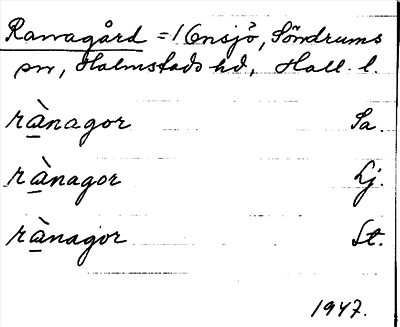 Ranagård = 1 Onsjö, Söndrums
sn, Halmstads hd, Hall. l.
rànagor Sa.
rànagor Lj.
rànagor St.
1947.